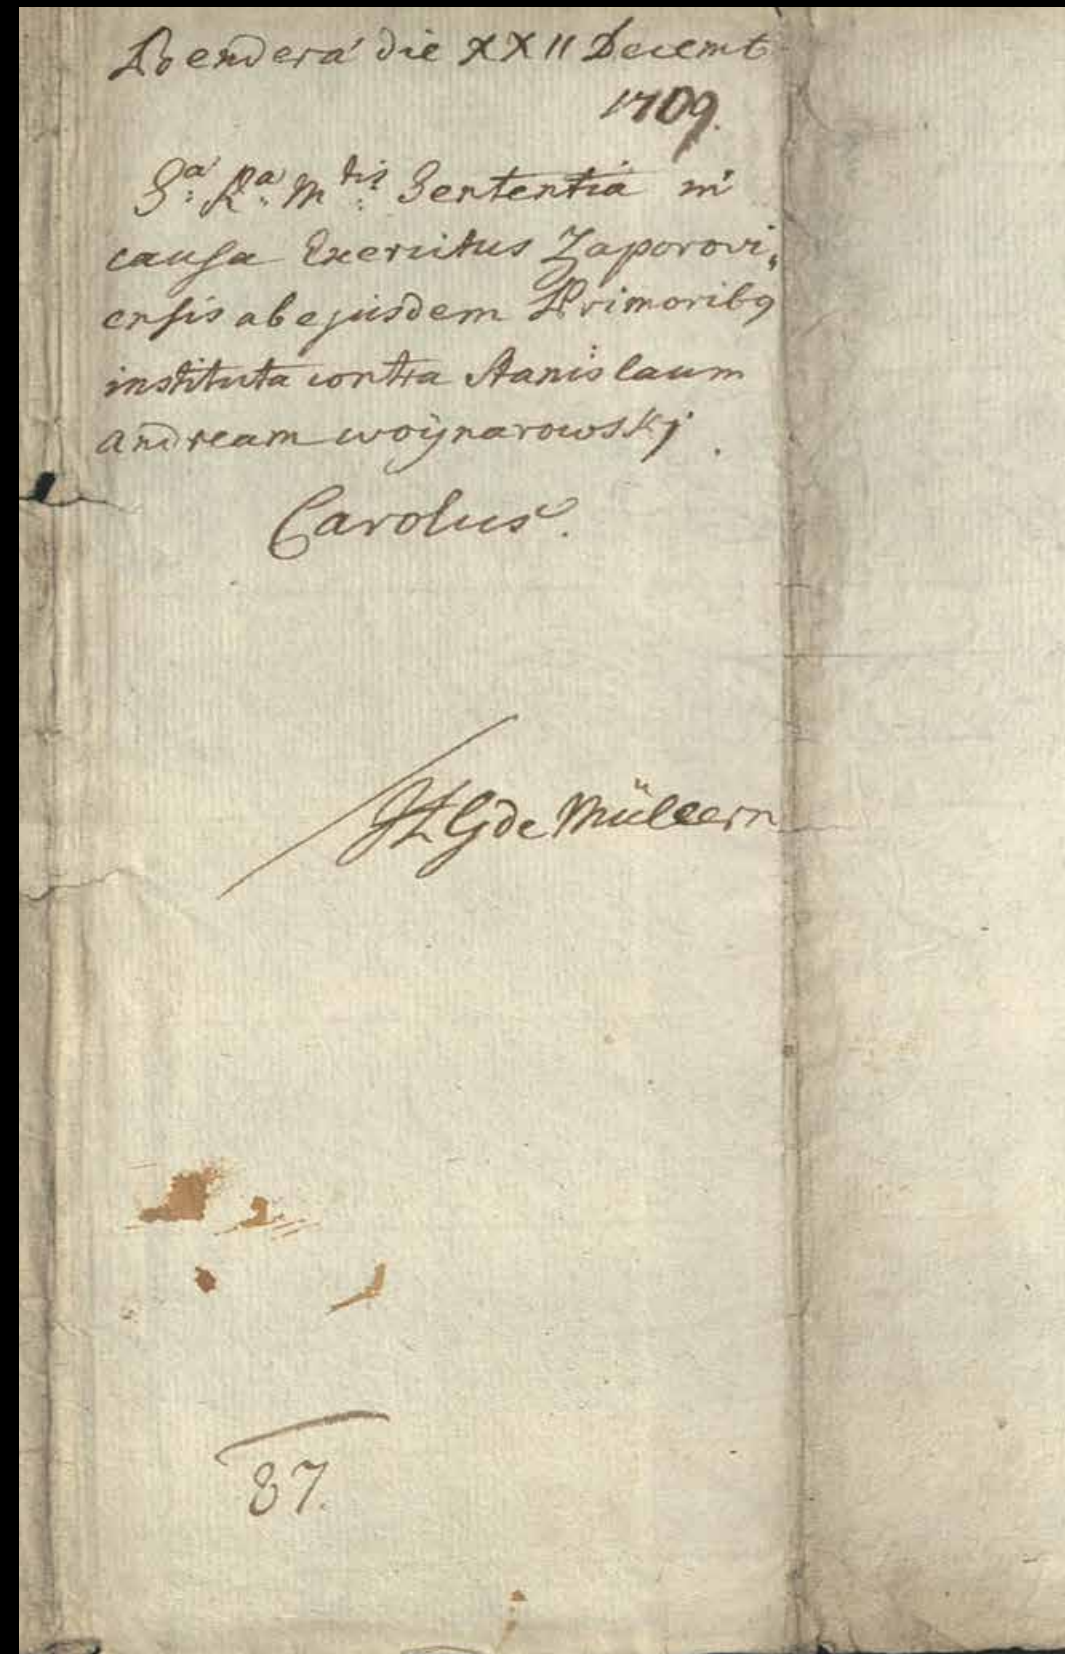 Benderâ die XXII Decemb
1709.
S:a R:a M:tis Sententia in
causa Exercitus Zaporovi„
ensis ab ejusdem Primoribq
instituta contra Stanislaum
Andream Woÿnarowskj.
Carolus.
HG de Müllern
87.